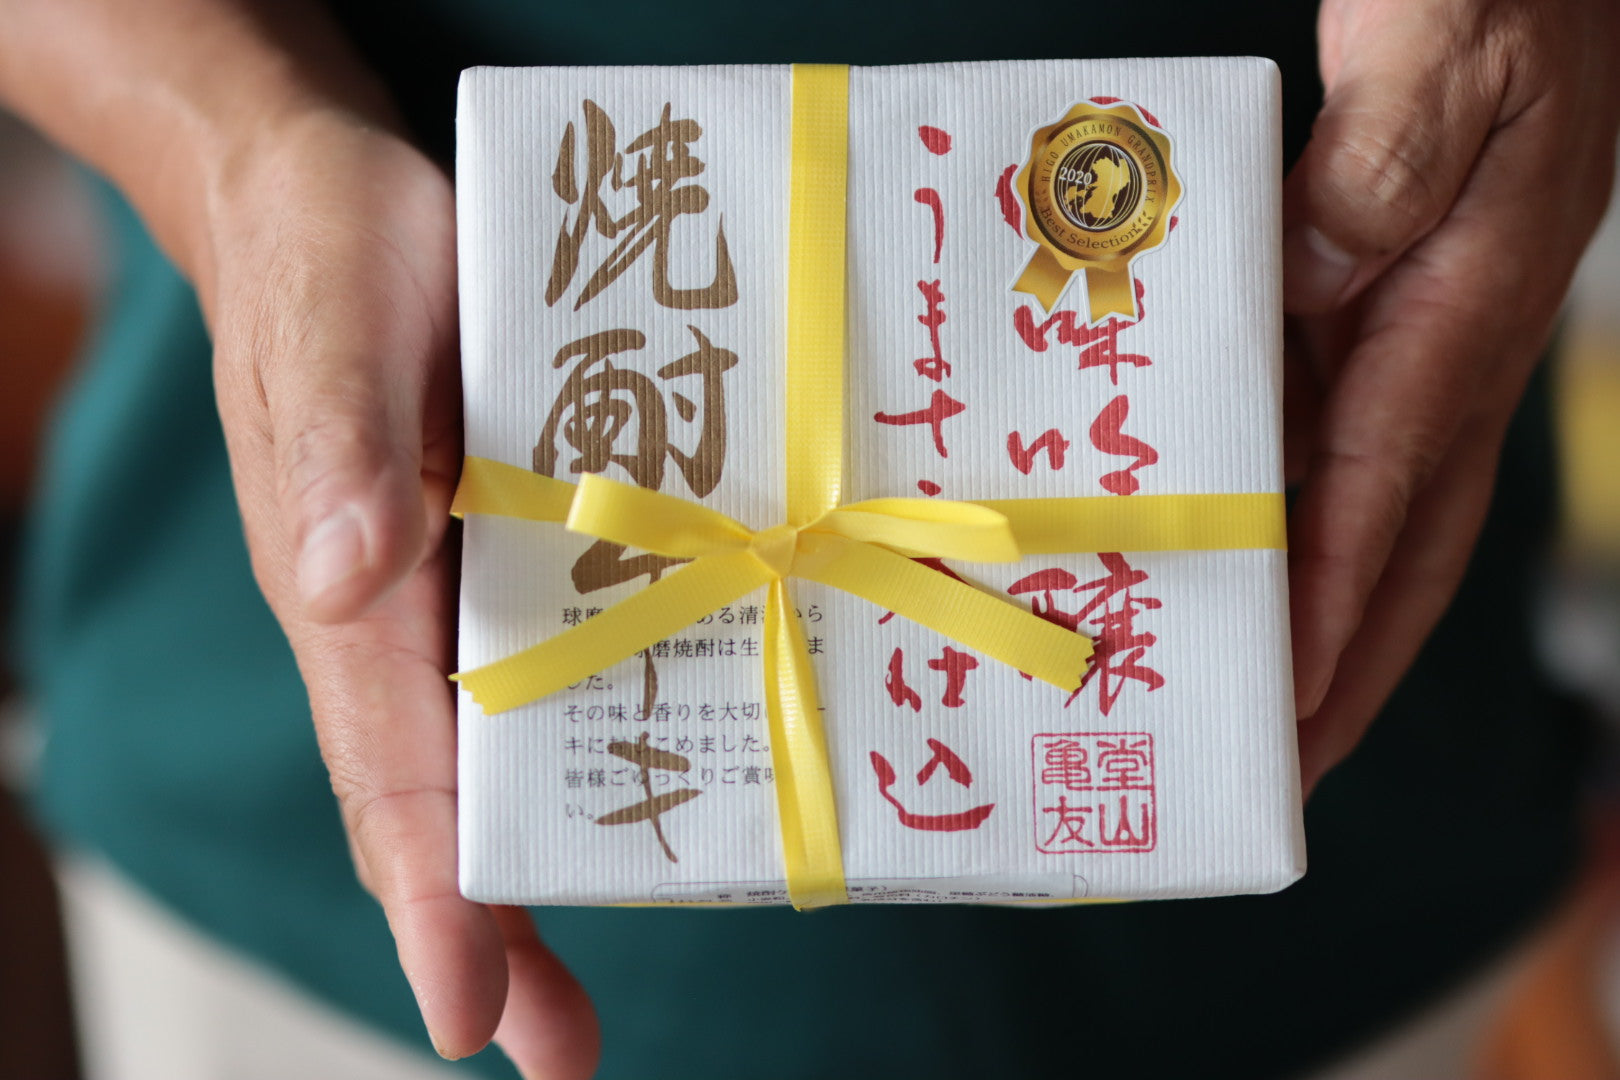 HIGO UMAKAMON GRANDPRIX
2020
Best Selection
味吟醸
うまさ
仕込
焼酎ケーキ
球磨 ある清流から
球磨焼酎は生 ま
した。
その味と香りを大切に ー
キに封じこめました。
皆様ごゆっくりご賞味
い。
堂山
亀友